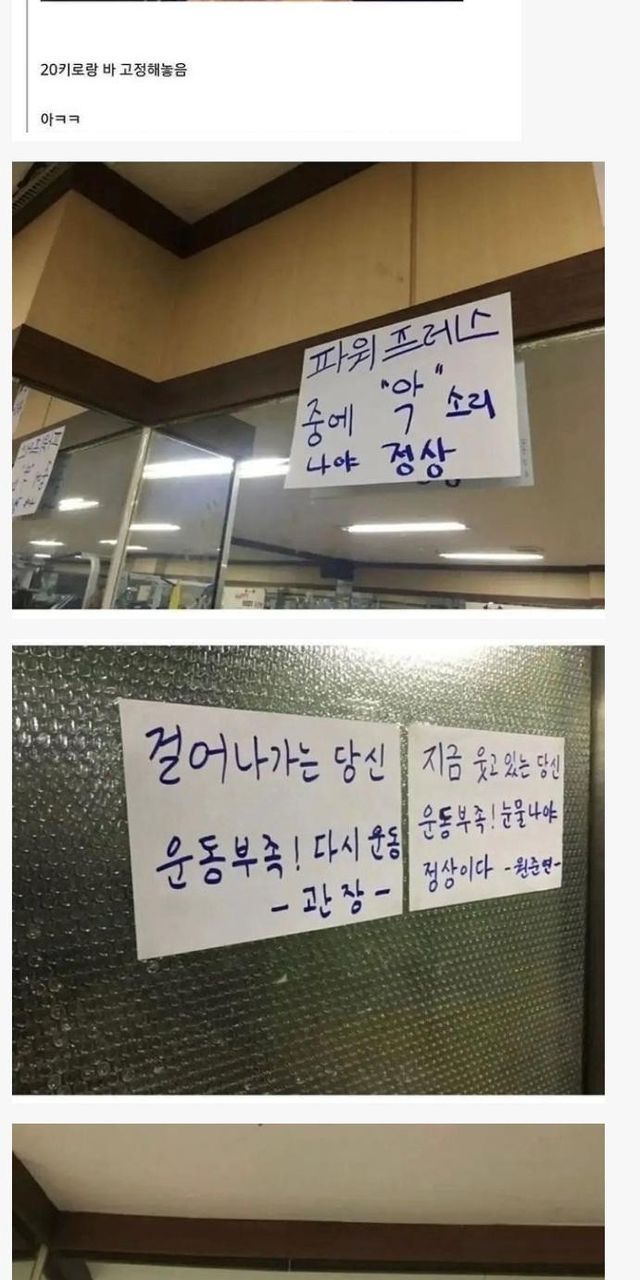 20키로랑 바 고정해놓음
아ㅋㅋ
파워프레스
중에 "악" 소리
나야 정상
걸어나가는 당신
운동부족! 다시 운동
- 관장 -
지금 웃고 있는 당신
운동부족! 눈물나야
정상이다 -원준연-